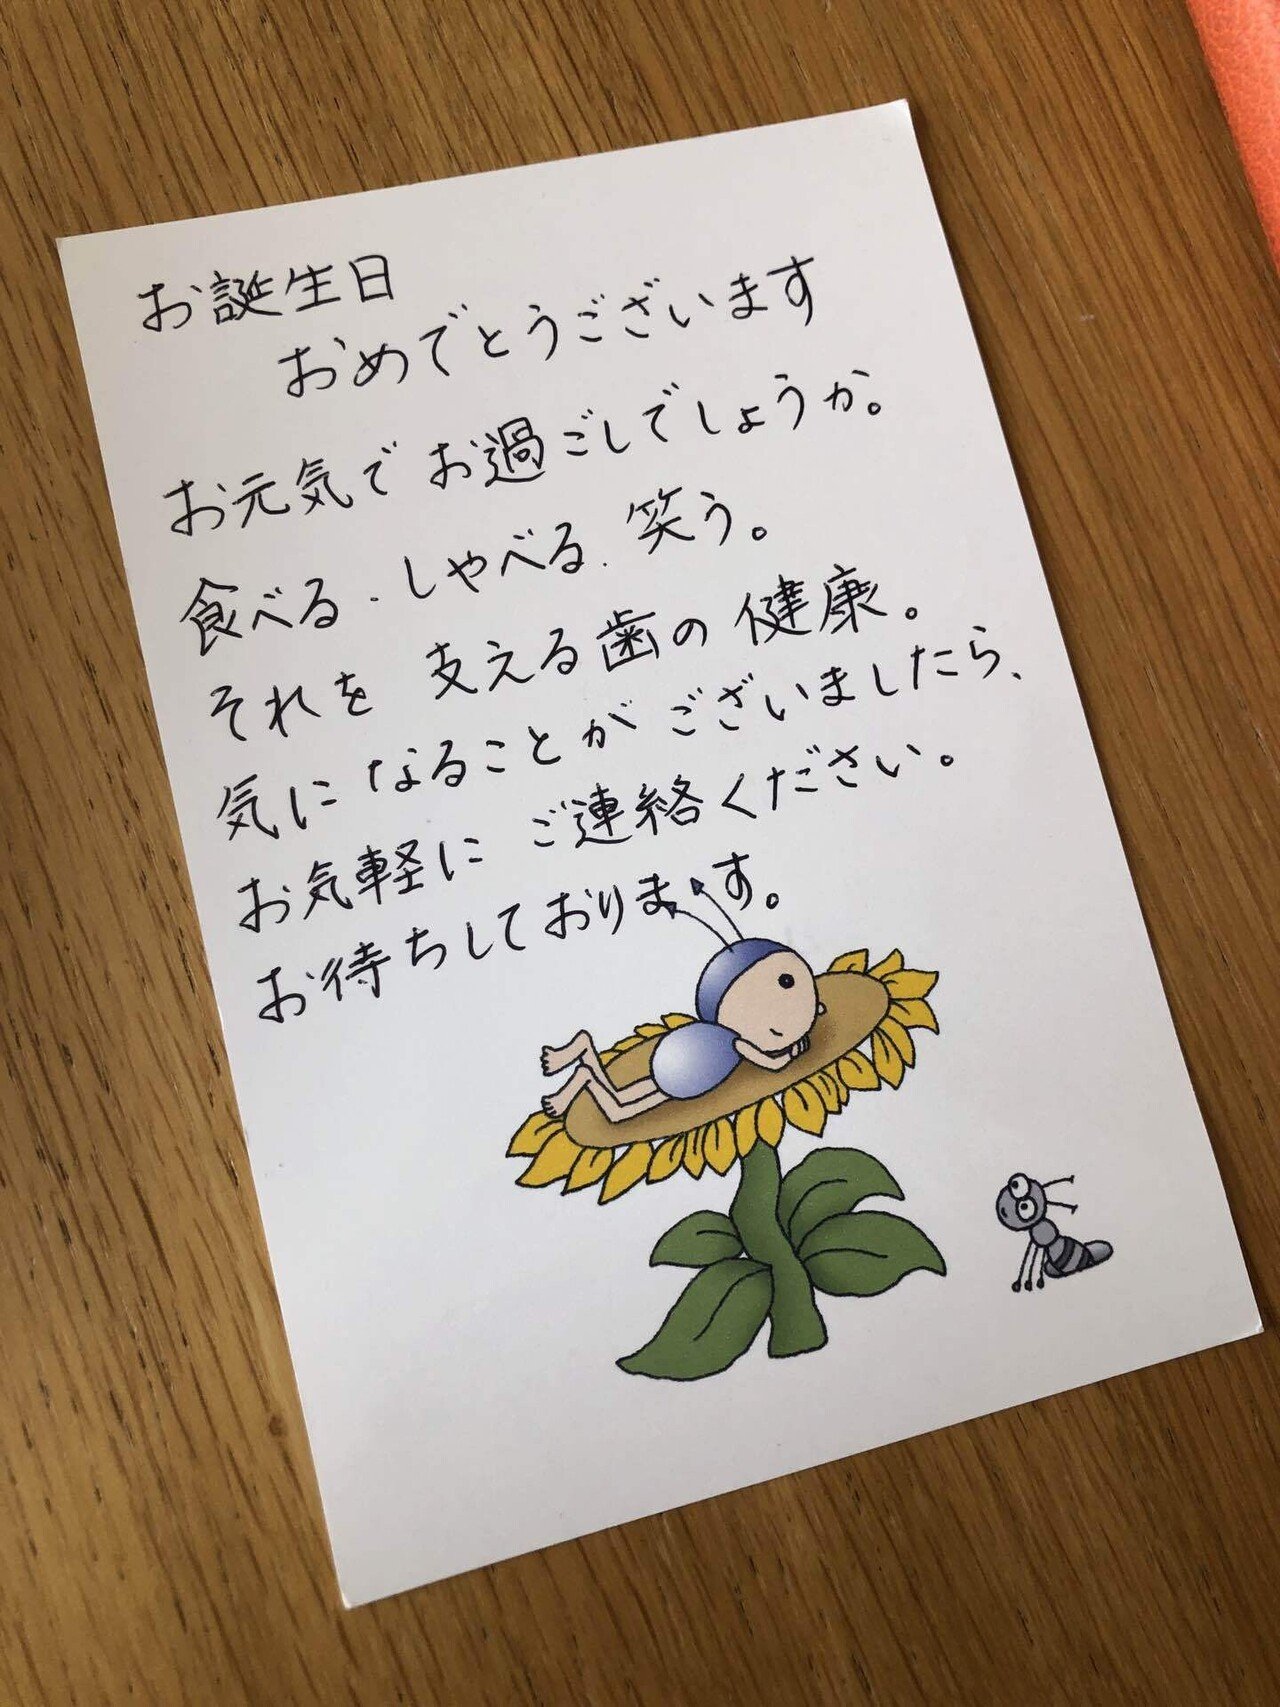 お誕生日
おめでとうございます
お元気でお過ごしでしょうか。
食べる．しゃべる．笑う。
それを支える歯の健康。
気になることがございましたら、
お気軽にご連絡ください。
お待ちしております。